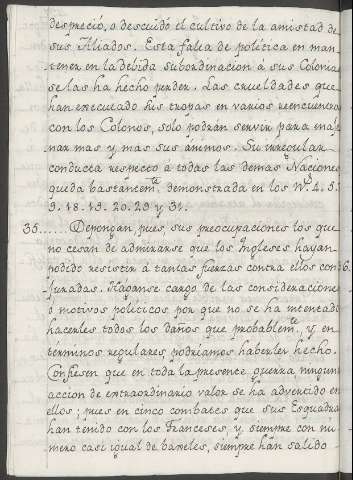 despreció, o descuidó el cultivo de la amistad de
sus Aliados. Esta falta de politica en man-
tener en la debida subordinacion á sus Colonias
se las ha hecho perder. Las crueldades que
han executado sus tropas en varios reencuentros
con los Colonos, solo podran servir para
mas y mas sus animos. Su irregular
conducta respecto á todas las demas Naciones
queda bastantemte. demonstrada en los Nos. 4. 5.
9. 18. 19. 20. 29 y 31.
35...... Depongan, pues, sus preocupaciones los que
no cesan de admirarse que los Ingleses hayan
podido resistir á tantas fuerzas contra ellos con-
juradas. Haganse cargo de las consideraciones
o motivos politicos por que no se ha intentado
hacerles todos los daños que probablemte. y en
términos regulares podriamos haberles hecho.
Confiesen que en toda la presente guerra ninguna
accion de extraordinario valor se ha advertido en
ellos; pues en cinco combates que sus Esquadras
han tenido con los Franceses, y siempre con nú-
mero casi igual de baxeles, siempre han salido